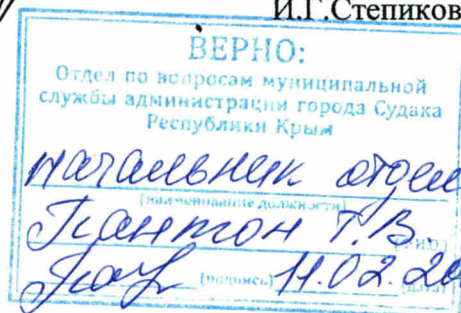 И.Г.Степиков
ВЕРНО:
Отдел по вопросам муниципальной
службы администрации города Судака
Республики Крым
начальник отдел
(наименование должности)
Т.В. (Ф.И.О.)
(подпись) 11.02.20 (дата)